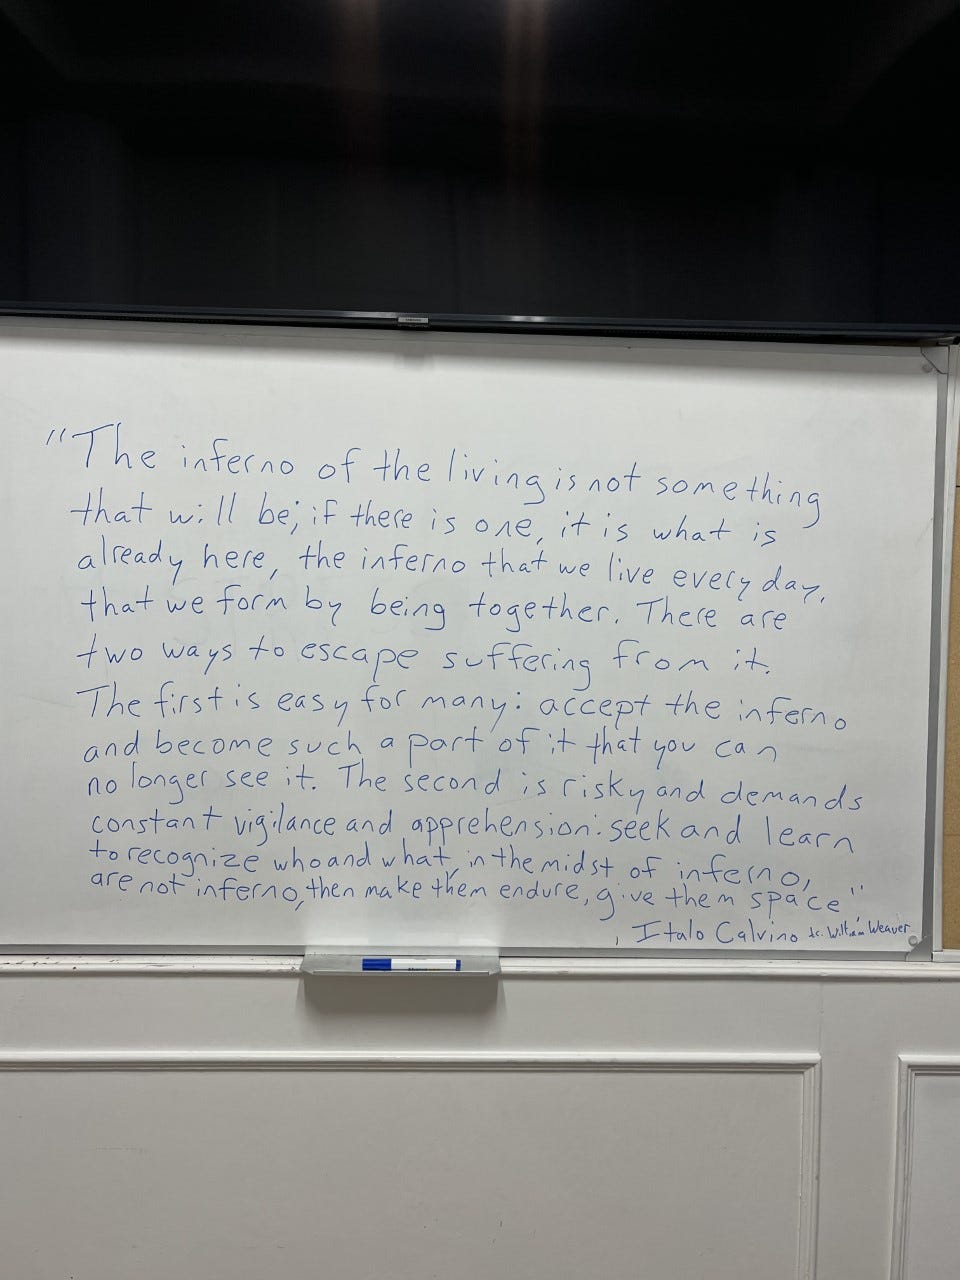 "The inferno of the living is not something
that will be; if there is one, it is what is
already here, the inferno that we live every day,
that we form by being together. There are
two ways to escape suffering from it.
The first is easy for many: accept the inferno
and become such a part of it that you can
no longer see it. The second is risky and demands
constant vigilance and apprehension: seek and learn
to recognize who and what, in the midst of inferno,
are not inferno, then make them endure, give them space"
Italo Calvino tr. William Weaver